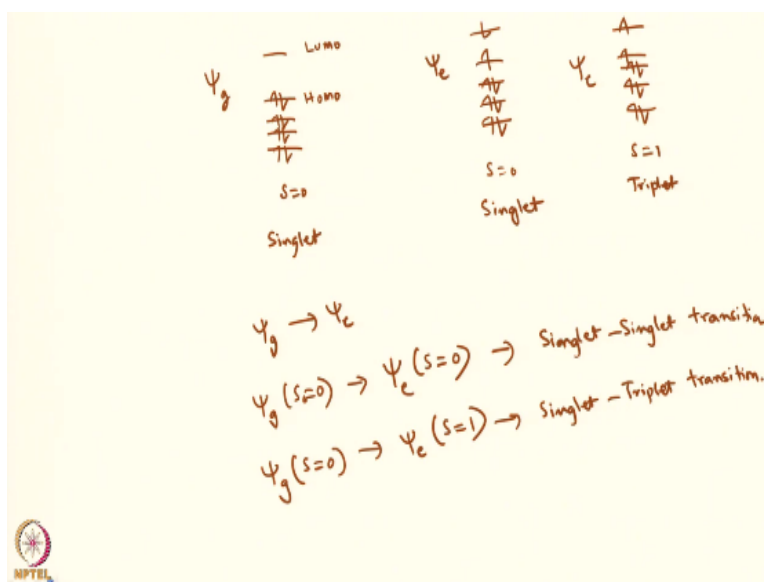 Lumo
Ψg
Homo
S=0
Singlet
Ψe
S=0
Singlet
Ψe
S=1
Triplet
Ψg → Ψe
Ψg (S=0) → Ψe (S=0) → Singlet - Singlet transitio
Ψg (S=0) → Ψe (S=1) → Singlet - Triplet transition.
NPTEL